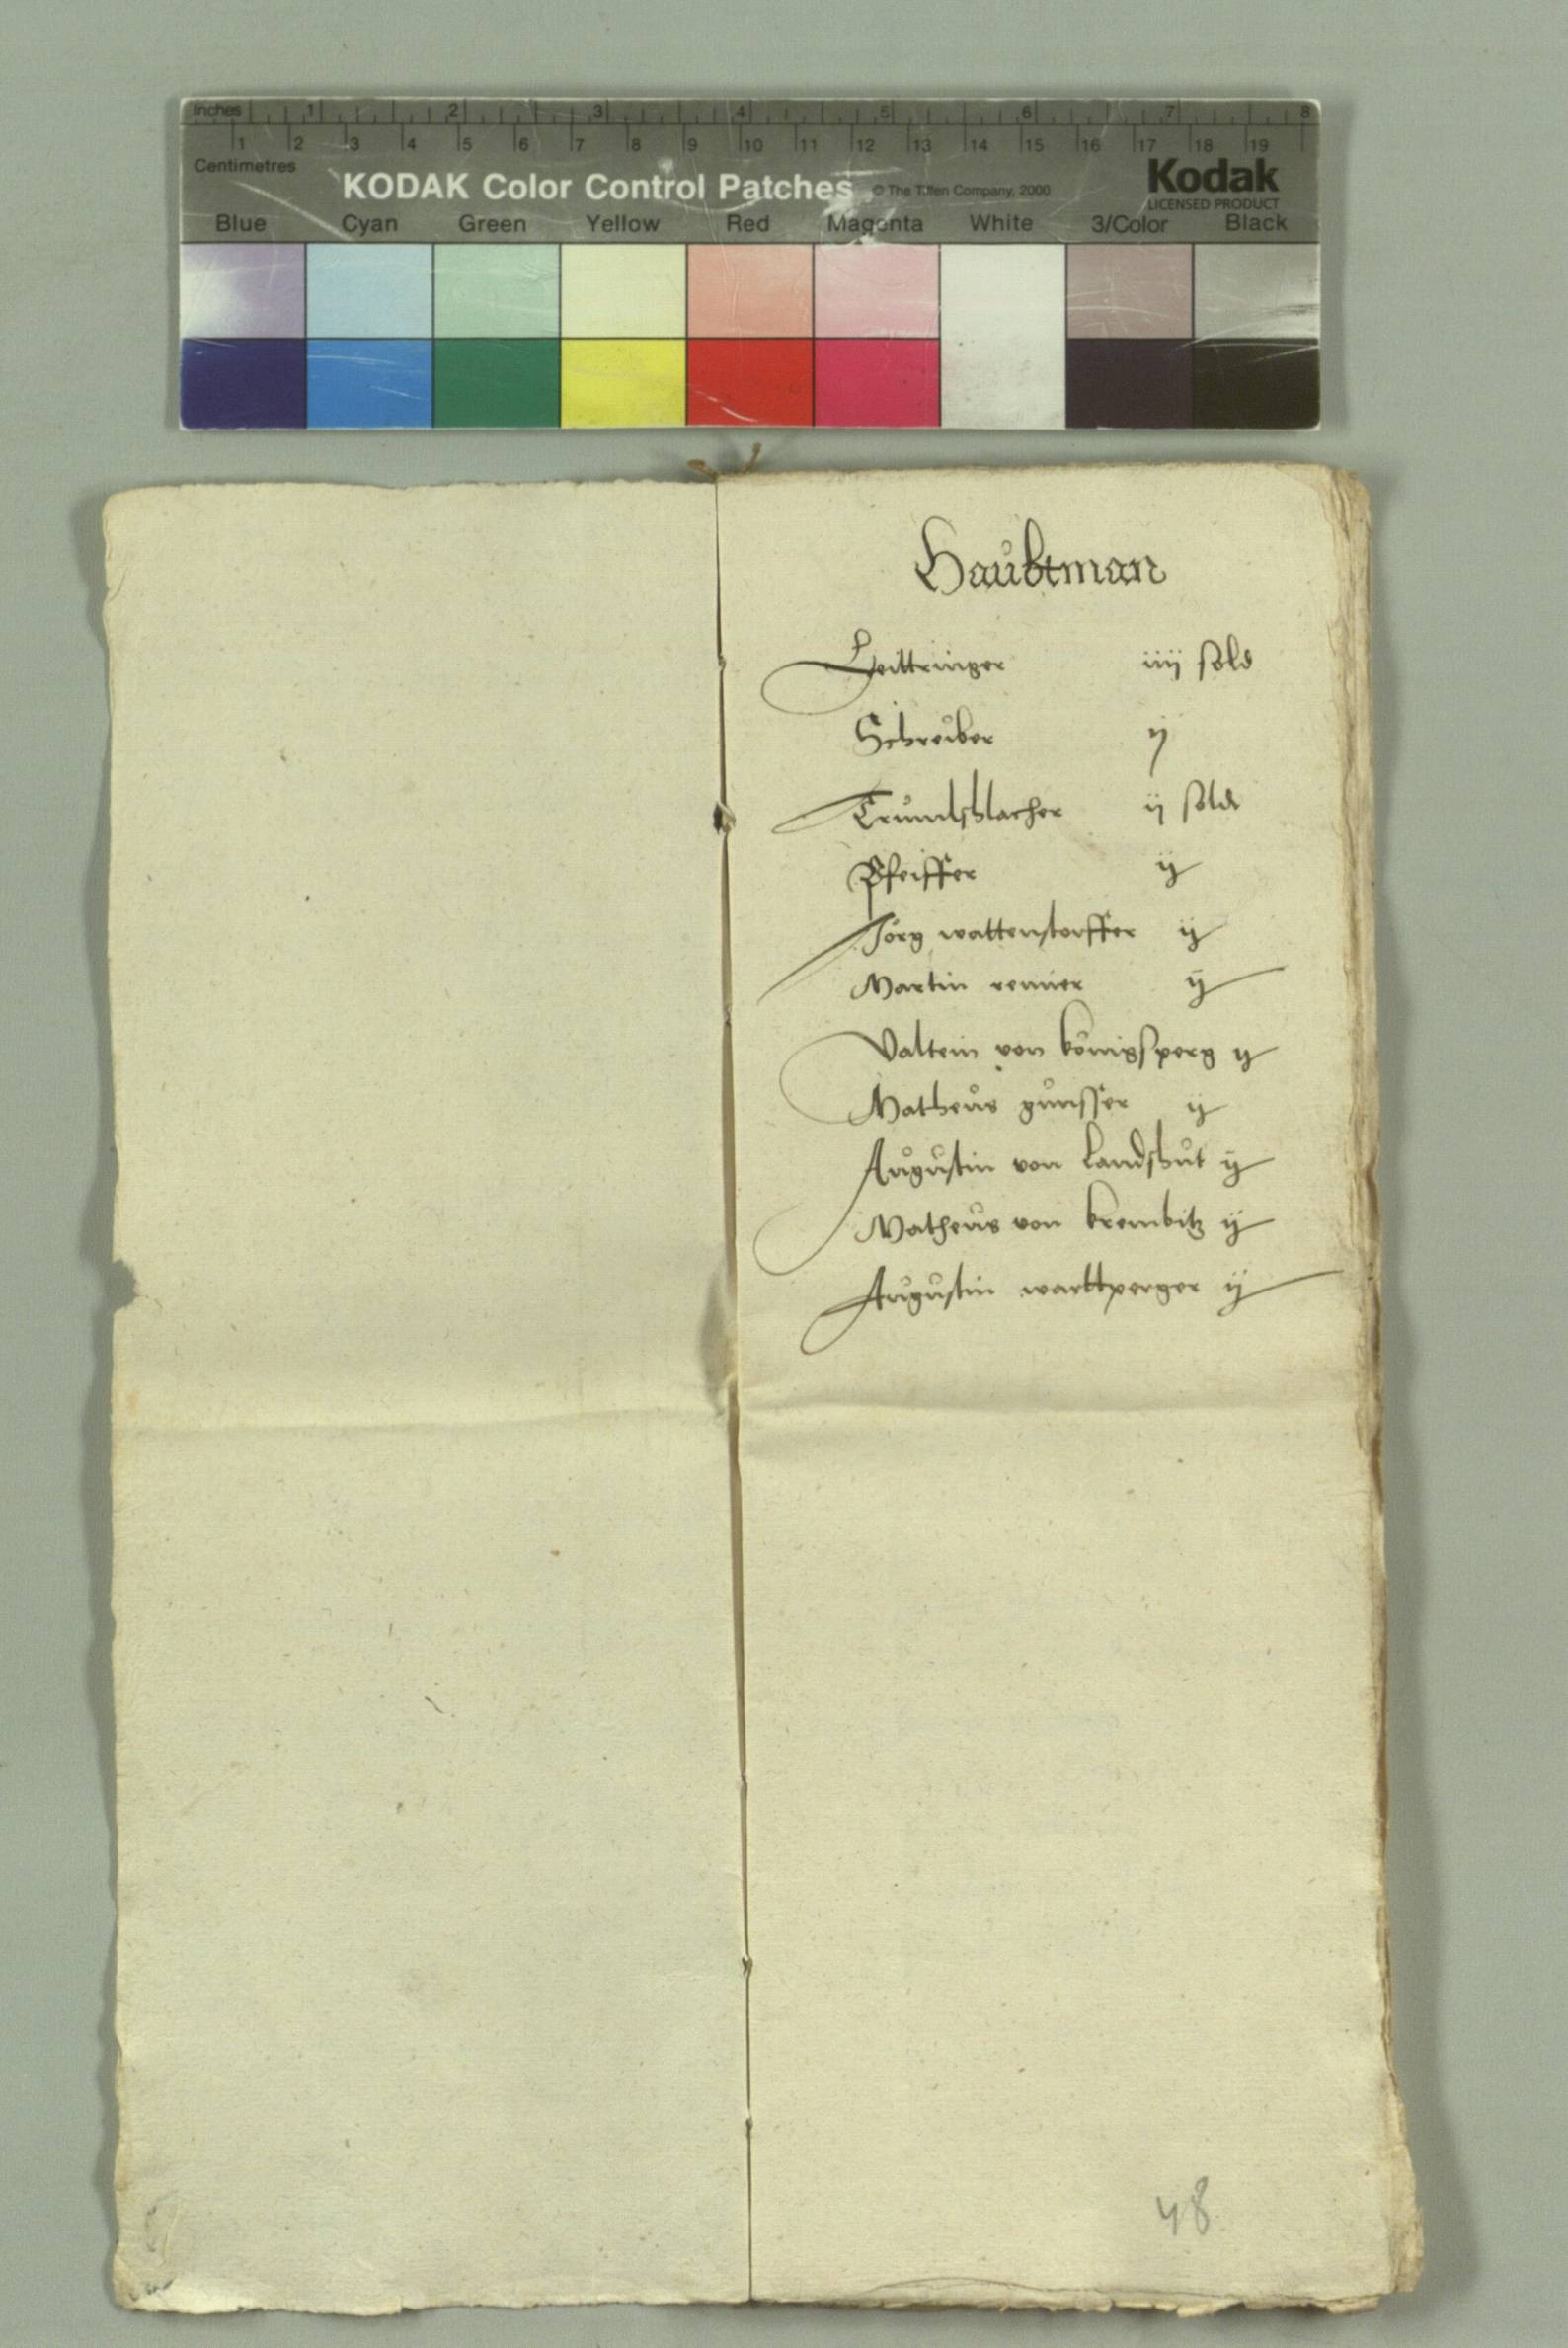 Inches 1 2 3 4 5 6 7 8
1 2 3 4 5 6 7 8 9 10 11 12 13 14 15 16 17 18 19
Centimetres
KODAK Color Control Patches © The Tiffen Company, 2000 Kodak
LICENSED PRODUCT
Blue Cyan Green Yellow Red Magenta White 3/Color Black
Haubtman
iiij sold
Schreiber ij
Trumlschlacher ij sold
Pfeiffer ij
Jörg wattenstorffer ij
Martin renner ij
Valtein von königsperg ij
Matheus gunsser ij
Augustin von Landshut ij
Matheus von krembitz ij
Augustin warttperger ij
48